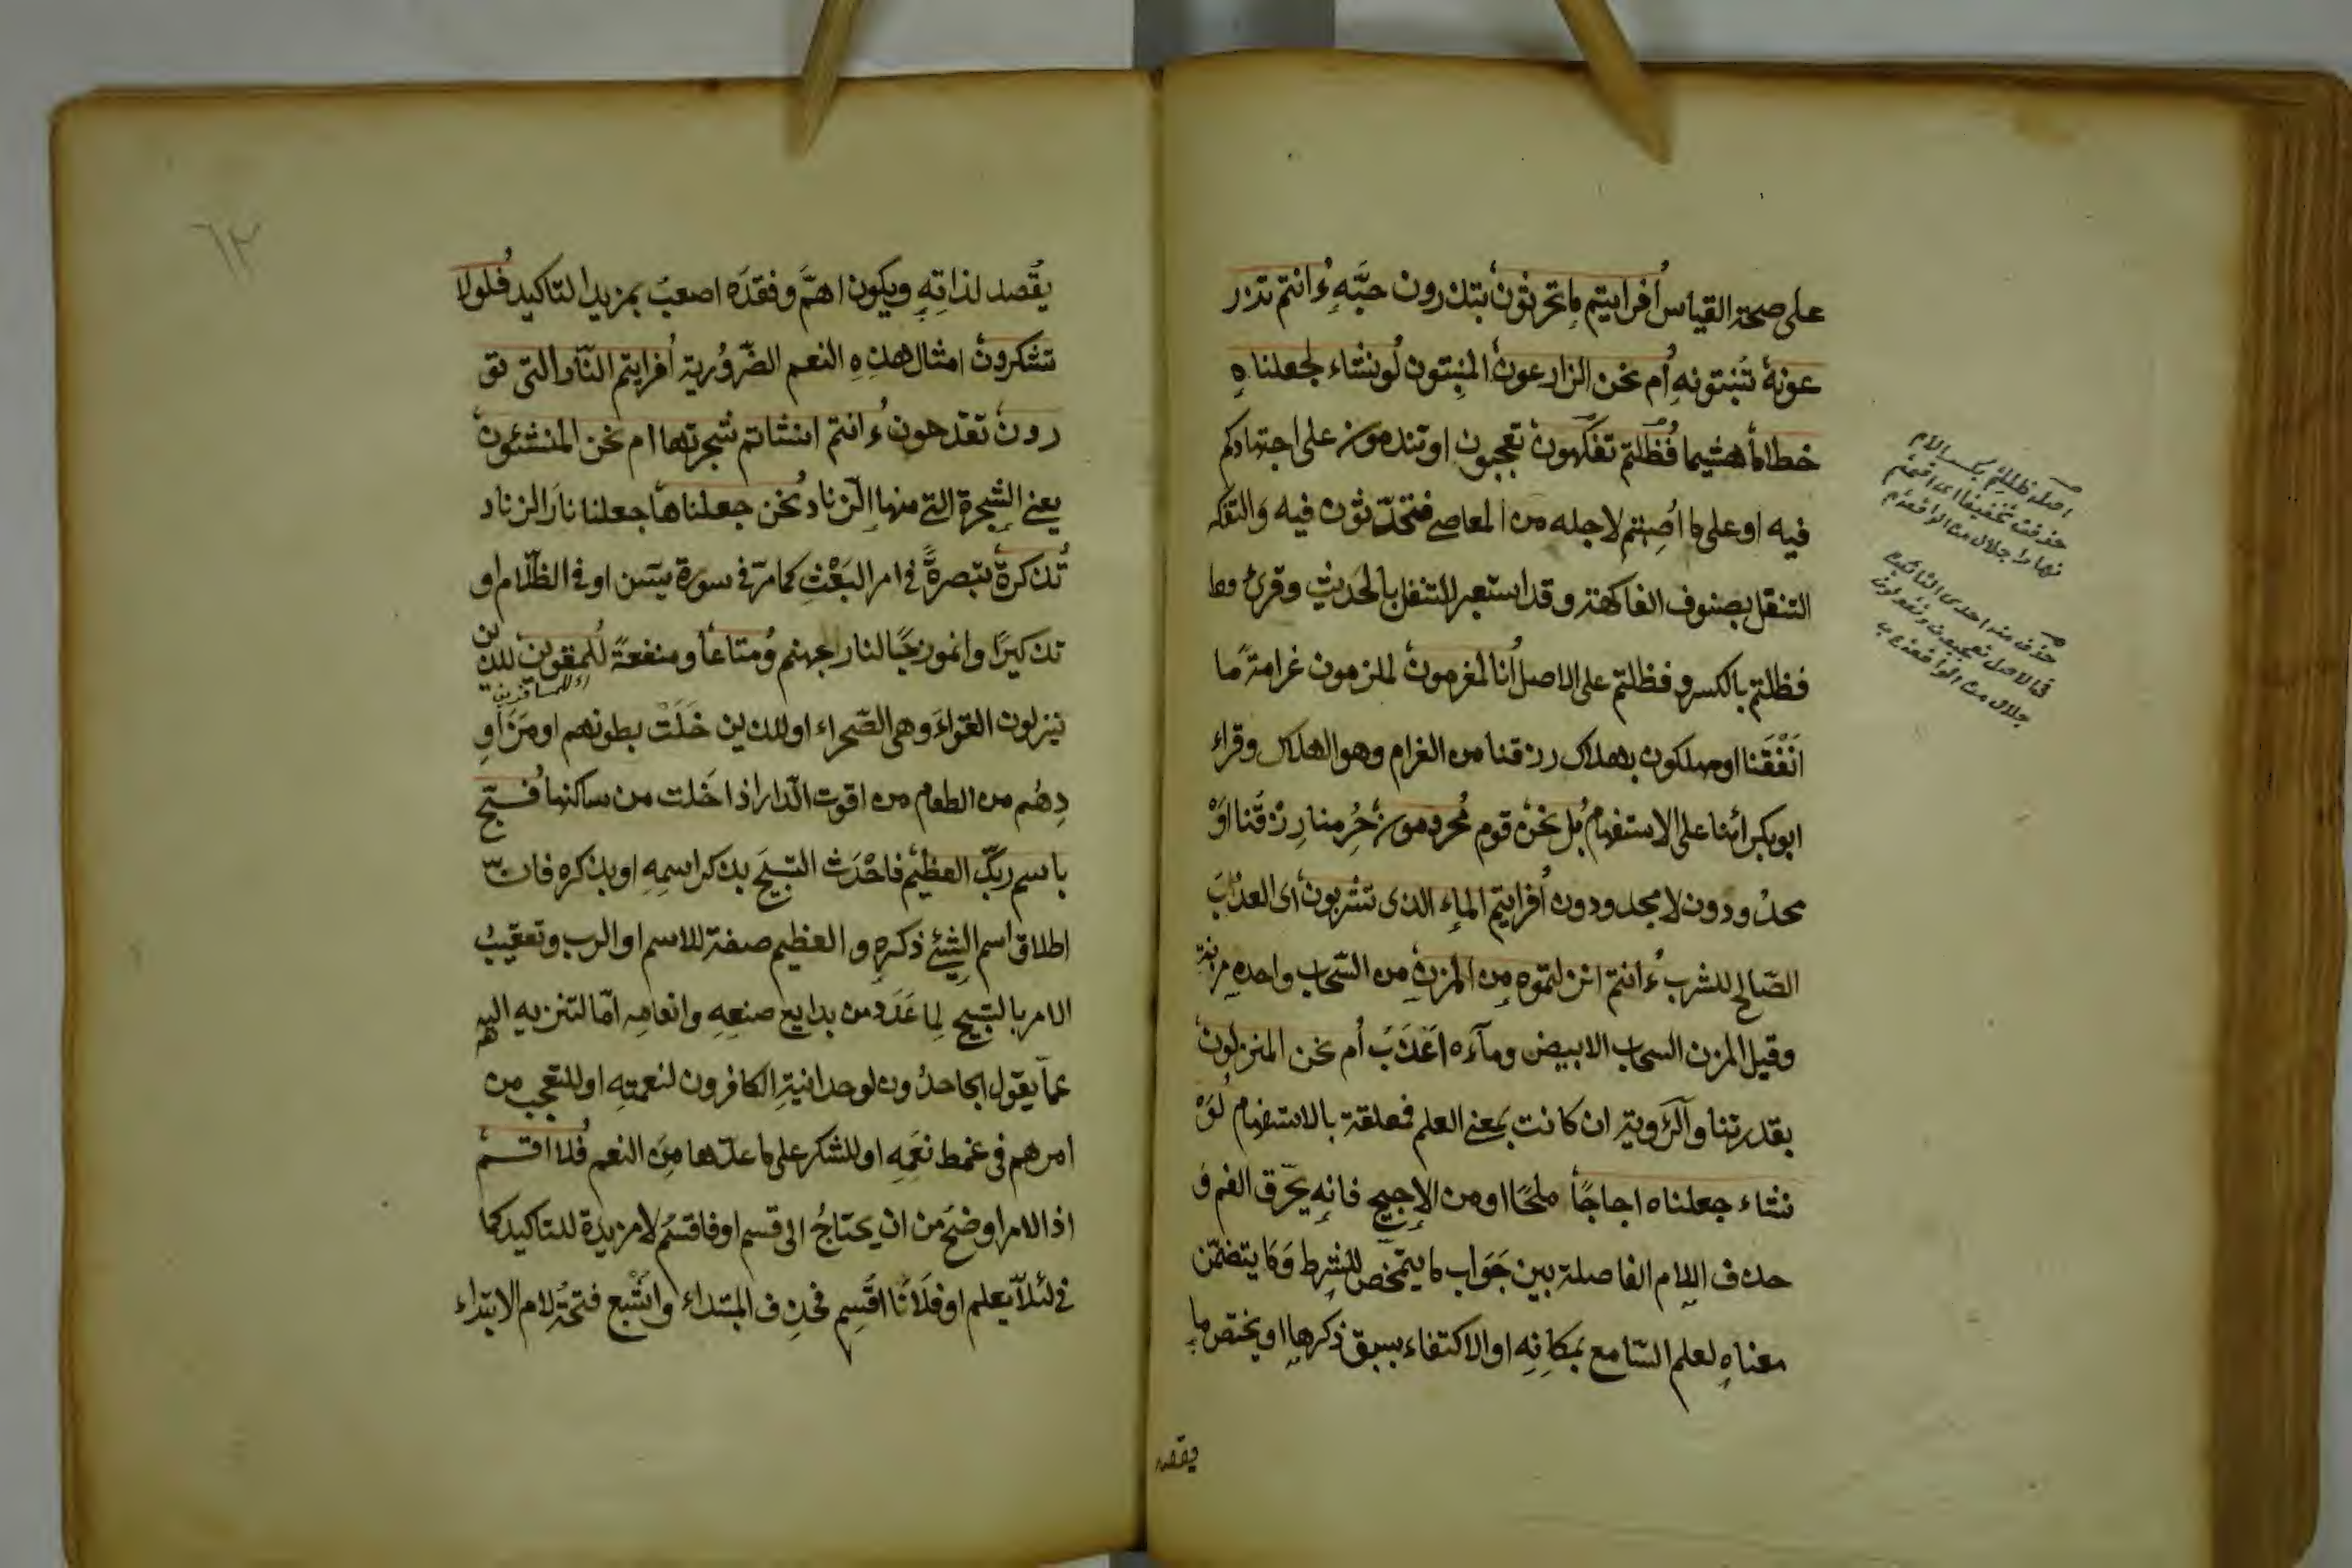 على صحة القياس أفرايتم ما تحرثون تبذرون حبَّه ءانتم تزر
عونهٔ تُنبتونه أم نحن الزارعون المنبتون لونشاء لجعلناه
خطاماً هشيما فظلتم تفكهون تعجبون او تندمون على اجتهادكم
فيه او على ما اُصِبتم لاجله من المعاصے فتتحدّثون فيه والتفكه
التنقل بصنوف الفاكهة وقد استعير للتنقل بالحديث وقرئ
فظلتم بالكسر و فظللتم على الاصل أنا لمغرمون لملزمون غرامة ما
اَنْفَقنا او مهلكون بهلاك رزقنا من الغرام وهو الهلاك وقراء
ابوبكر ائنا على الاستفهام بل نحن قوم محرومون حُرِمنا رِزْقَنا اَوْ
محدْودون لا مجدودون أفرايتم الماء الذى تشربون اى العذْبَ
الصّالح للشرب ءانتم انزلتموه من المزن من السّحاب واحده مزنة
وقيل المزن السحاب الابيض ومآءه اَعْذَبُ أم نحن المنزلون
بقدرتنا والرّؤية ان كانت بمعنى العلم فمعلقة بالاستفهام لَوْ
نشاء جعلناه اجاجًا ملحًا او من الاجيج فانه يحرّق الفم وَ
حذف اللام الفاصلة بين جَوَاب ما يتمحّض للشرط وَمَا يتضمّن
معناه لعلم السّامع بمكانِه او الاكتفاء بسبق ذكرها او يختص ما
يقصد
اصله ظللتم بكسر اللام
حذفت تخفيفا اى اقمتم
نهارا جلال من الواقعة
حذف منه احدى التائين
فى الاصل تعجبون وتقولون
جلال من الواقعة
٦٢
يقُصد لذاتِهِ ويكون اهمَّ وفقدَه اصعبُ بمزيد التاكيد فلولا
تشكرون امثال هذِهِ النعم الضّروُرية أفرايتم النّار التى تو
رون تقدحون ءانتم انشاتم شجرتها ام نحن المنشئون
يعنے الشجرة التے منها الزناد نحن جعلناها جعلنا نارَ الزناد
تذكرة تبصرةً فے امر البَعْثِ كما مرّ فے سورة يسٓن او فے الظلّام او
تذكيرًا وانموزجًا لنار جهنم ومتاعاً ومنفعةً للمقوين للذين
اى للمسافرين
ينزلون القَواءَ وهى الصّحراء او للذين خَلَتْ بطونهم او مَزَاوِ
دِهُم من الطعام من اقوت الدّار اذا خَلت من ساكنها فسبّح
باسم ربّك العظيم فاحْدَث التسبيحَ بذكر اسمِهِ او بذكره فانّ
اطلاق اسم الشئے ذكره و العظيم صفة للاسم او الرب وتعقيبُ
الامر بالتسبيح لِما عَدَد من بدايع صنعِهِ وانعامِه امّا لتنزيهه
عمّا يقول الجاحدُون لوحدانيتِه الكافرون لنعمتِه او للتعجب من
امرهم فى غمط نعَمِه او للشكر على ما عدّها مِنَ النعم فلا اقسم
اذ الامر اوضحُ من ان يحتاجُ الى قسم او فاقسُم لا مزيدة للتاكيد كما
فے لئلاّ يعلم او فلَأنَا اقَسِم فحذِف المبتداء واشْبع فتحَة لام الابتداء